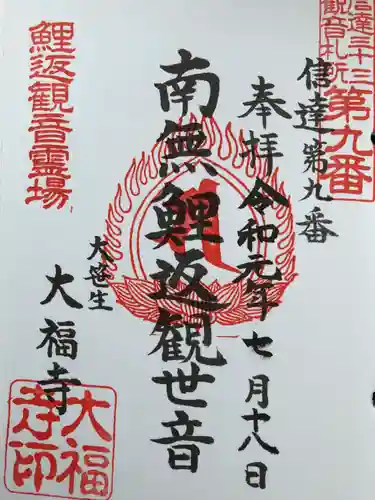 信達三十三
観音札所
第九番
信達第九番
奉拝令和元年七月十八日
南無鯉返観世音
鯉返観音霊場
大笹生
大福寺
大福
寺印